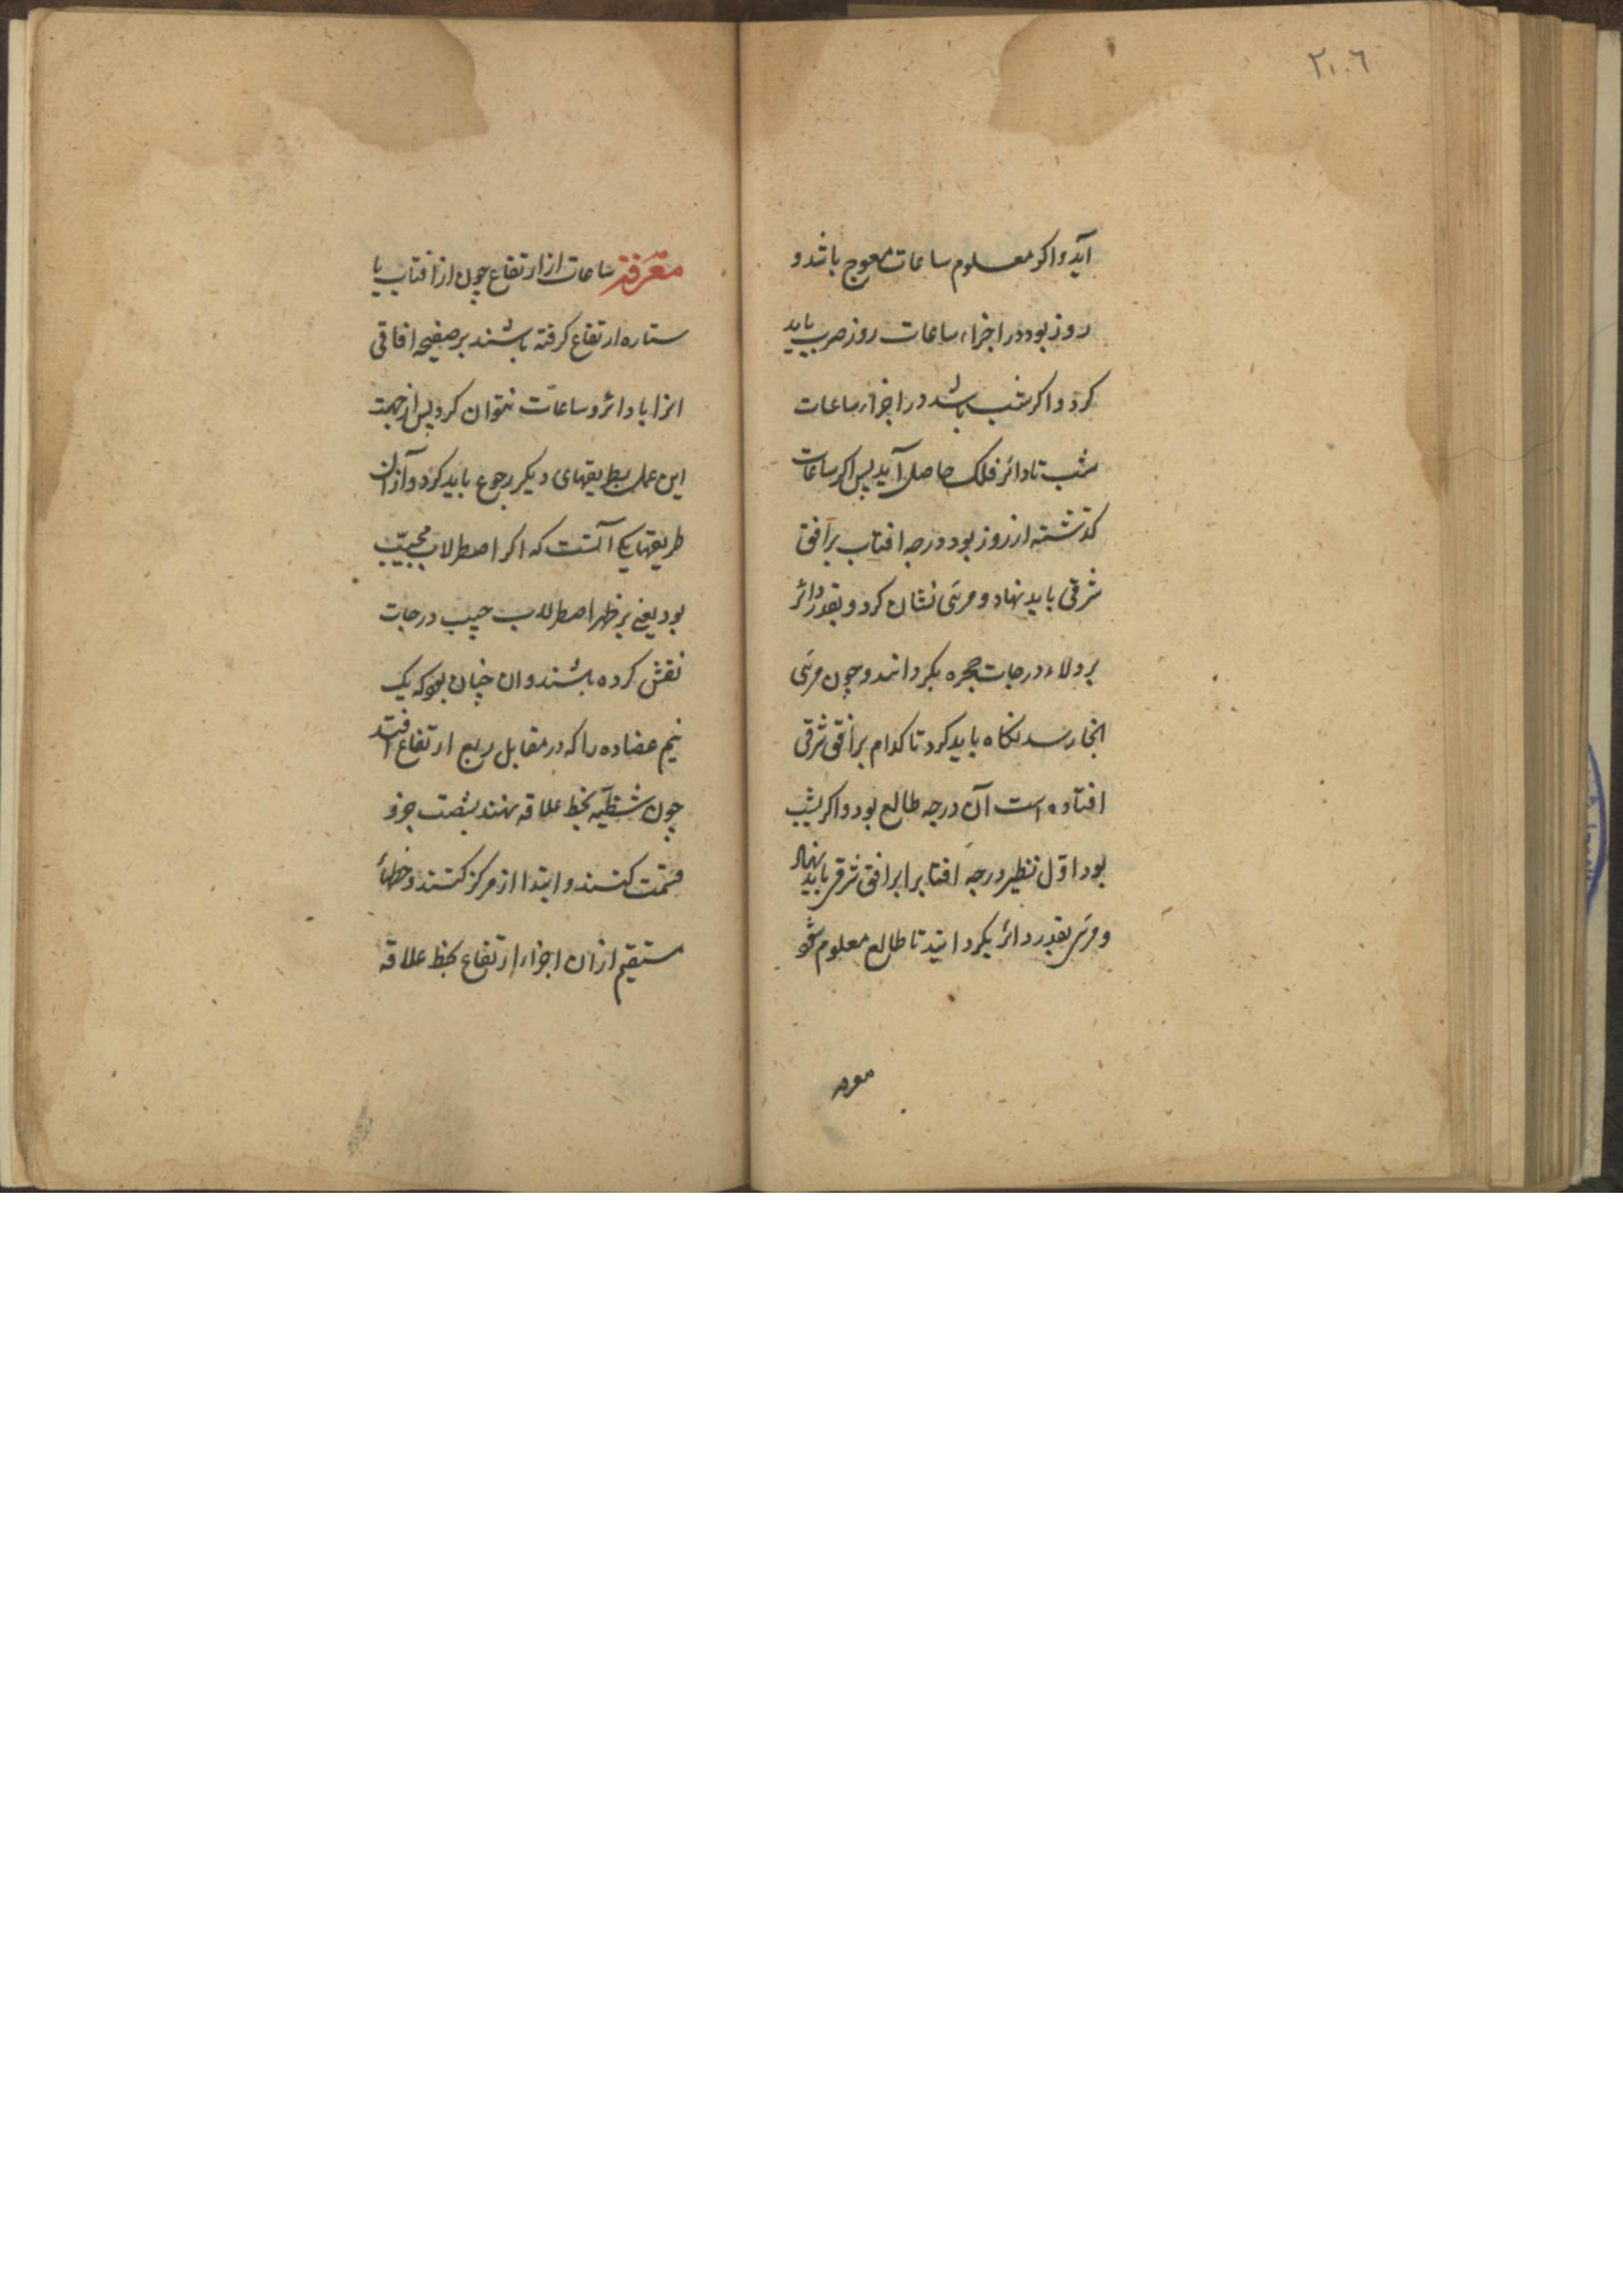 ٢٠٦
آید و اکر معلوم ساعات معوج باشد و
روز بود در اجزاء ساعات روز ضرب باید
کرد و اکر شب باشد در اجزاء ساعات
شب تا دائر فلک حاصل آید پس اکر ساعات
کذشته از روز بود درجه افتاب بر افق
شرقی باید نهاد و مری نشان کرد و بقدر دائر
بر ولاء درجات حجره بکردانند و چون مری
انجا رسد نکاه باید کرد تا کدام بر افق شرقی
افتاده است آن درجه طالع بود و اکر بشب
بود اوّل نظیر درجه افتاب را بر افق شرقی باید نهاد
و مری بقدر دائر بکردانید تا طالع معلوم شود
معرفه
معرفة ساعات از ارتفاع چون از افتاب یا
ستاره ارتفاع کرفته باشند بر صفیحه افاقی
انرا با دائر و ساعات نتوان کرد پس از جهت
این عمل بطریقهای دیکر رجوع باید کرد و آز ان
طریقها یکی آنست که اکر اصطرلاب مجیّب
بود یعنی بر ظهر اصطرلاب جیب درجات
نقش کرده باشند و ان چنان بود که یک
نیم عضاده را که در مقابل ربع ارتفاع افتد
چون شظیّه بخط علاقه نهند بشصت جزو
قسمت کنند و ابتدا از مرکز کنند و خطهاء
مستقیم از ان اجزاء ارتفاع بخط علاقه